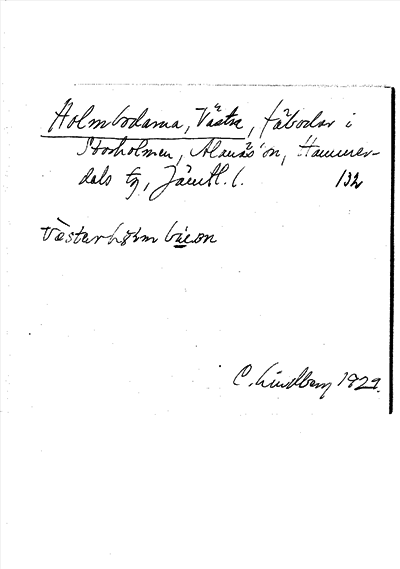 Holmbodarna, Västra, fäbodar i
Storholmen, Alanäs'ön, Hammer-
dals tg, Jämtl. l. 132
Västerhòlmbùeɷn
C. Lindberg 1929.